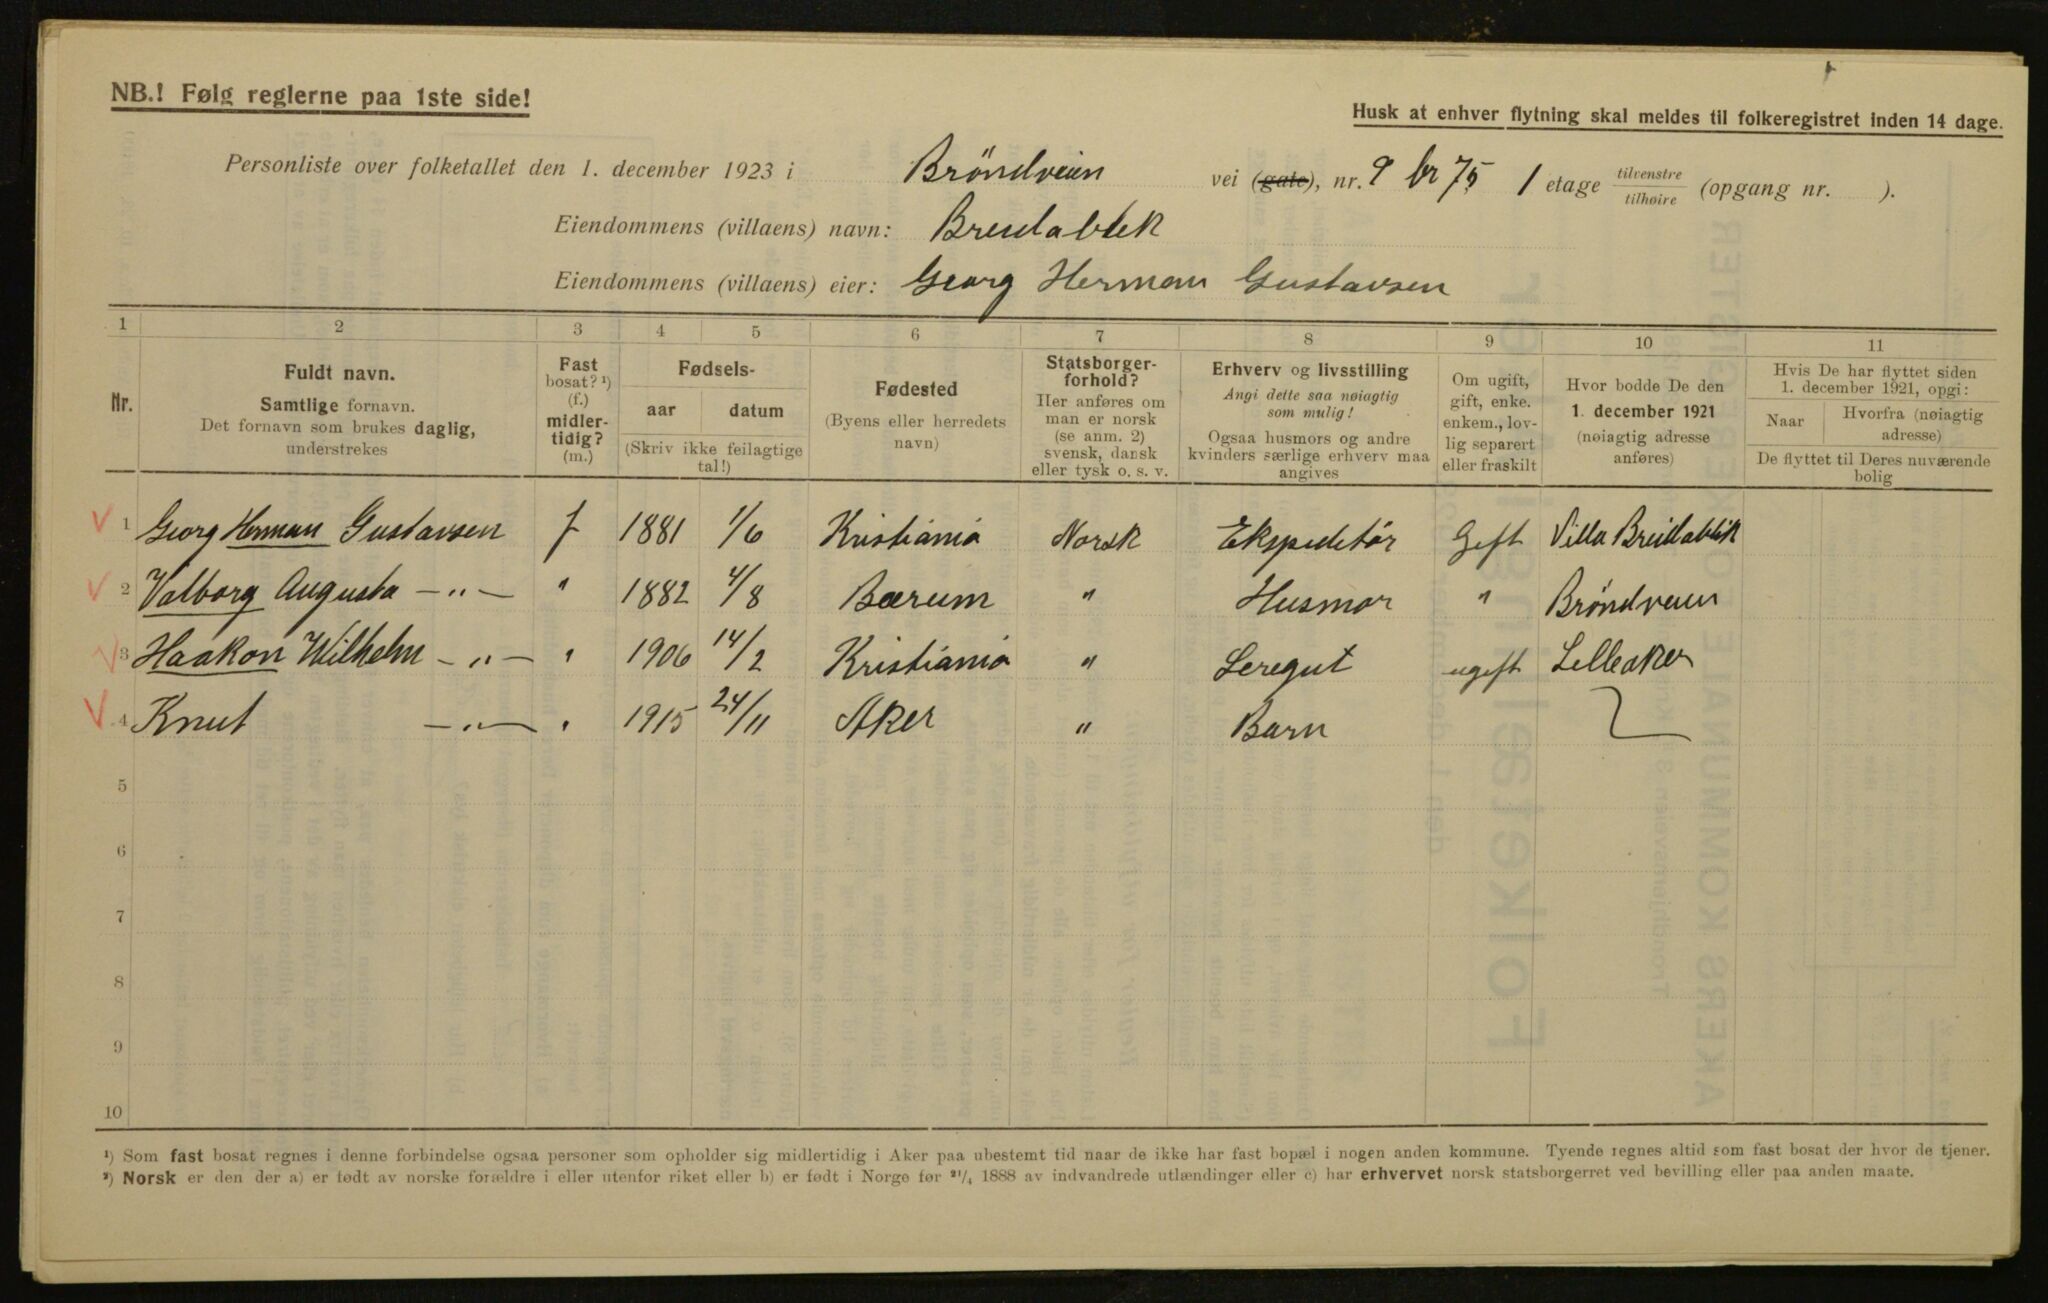 NB.! Følg reglerne paa 1ste side!
Husk at enhver flytning skal meldes til folkeregistret inden 14 dage.
Personliste over folketallet den 1. december 1923 i Bröndveien vei (gate), nr. 9 br 75 1 etage tilvenstre tilhøire (opgang nr. ).
Eiendommens (villaens) navn: Breidablik
Eiendommens (villaens) eier: Georg Herman Gustavsen
1 2 3 4 5 6 7 8 9 10 11
Nr.
Fuldt navn.
Samtlige fornavn.
Det fornavn som brukes daglig,
understrekes
Fast
bosat? ¹)
(f.)
midler-
tidig?
(m.)
Fødsels-
aar datum
(Skriv ikke feilagtige
tal!)
Fødested
(Byens eller herredets
navn)
Statsborger-
forhold?
Her anføres om
man er norsk
(se anm. 2)
svensk, dansk
eller tysk o. s. v.
Erhverv og livsstilling
Angi dette saa nøiagtig
som mulig!
Ogsaa husmors og andre
kvinders særlige erhverv maa
angives
Om ugift,
gift, enke.
enkem., lov-
lig separert
eller fraskilt
Hvor bodde De den
1. december 1921
(nøiagtig adresse
anføres)
Hvis De har flyttet siden
1. december 1921, opgi:
Naar
Hvorfra (nøiagtig
adresse)
De flyttet til Deres nuværende
bolig
1 Georg Herman Gustavsen f 1881 1/6 Kristiania Norsk Ekspeditør Gift Villa Breidablik
2 Valborg Augusta —"— " 1882 4/8 Bærum " Husmor " Bröndveien
3 Haakon Wilhelm —"— " 1906 14/2 Kristiania " Leregut ugift Lilleaker
4 Knut —"— " 1915 24/11 Aker " Barn
5
6
7
8
9
10
¹) Som fast bosat regnes i denne forbindelse ogsaa personer som opholder sig midlertidig i Aker paa ubestemt tid naar de ikke har fast bopæl i nogen anden kommune. Tyende regnes altid som fast bosat der hvor de tjener.
²) Norsk er den der a) er født av norske forældre i eller utenfor riket eller b) er født i Norge før ²¹/₄ 1888 av indvandrede utlændinger eller c) har erhvervet norsk statsborgerret ved bevilling eller paa anden maate.